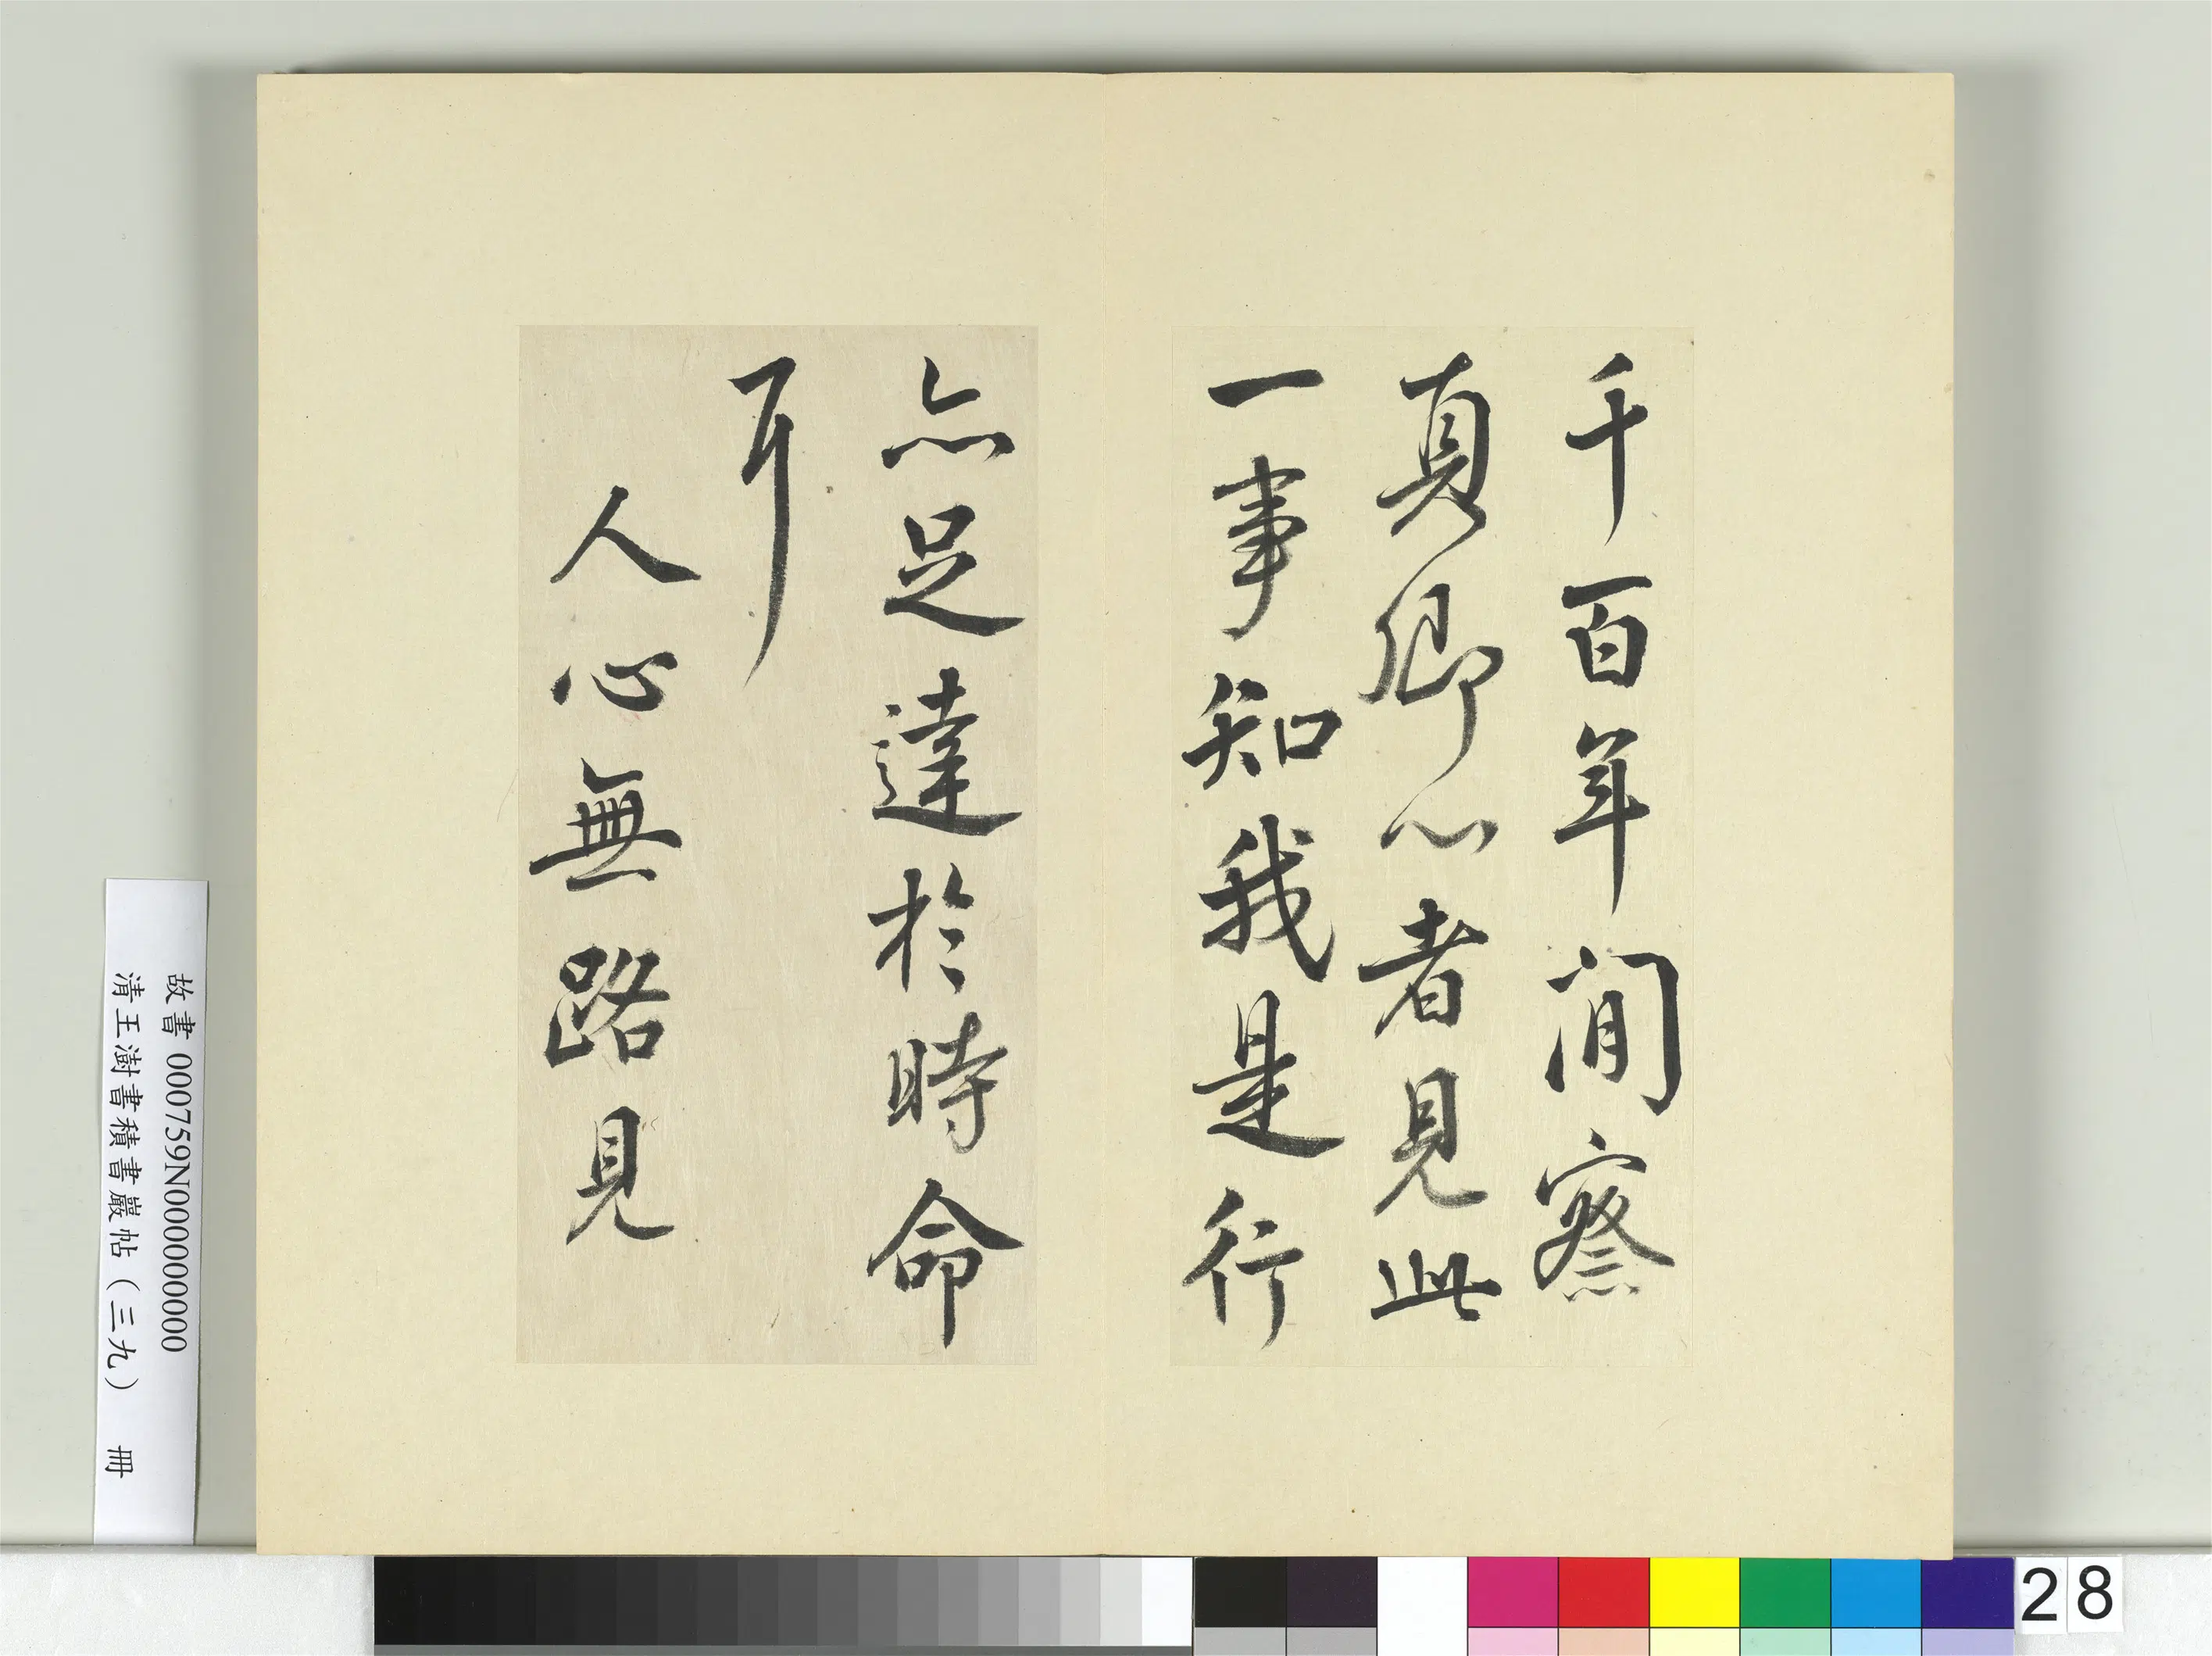 千百年間察
真卿心者見此
一事知我是行
亦足達於時命
耳
人心無路見
故書 000759N000000000
清王澍書積書巖帖（三九） 冊
28